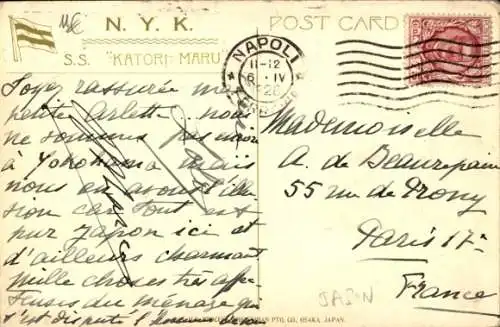 N. Y. K.
POST CARD
S.S. "KATORI MARU"
NAPOLI
11-12
6 · IV
Soyez rassurée ma
petite Arlette nous
ne sommes pas encore
à Yokohama mais
nous en avons l'illu
sion car tout est
pur Japon ici et
d'ailleurs charmant
Mille choses très affec
tueuses du ménage qui
s'est disputé l'honneur de
Mademoiselle
A. de Beaurepaire
55 rue de Prony
Paris 17e
France
JAPON
PTG. CO., OSAKA, JAPAN.